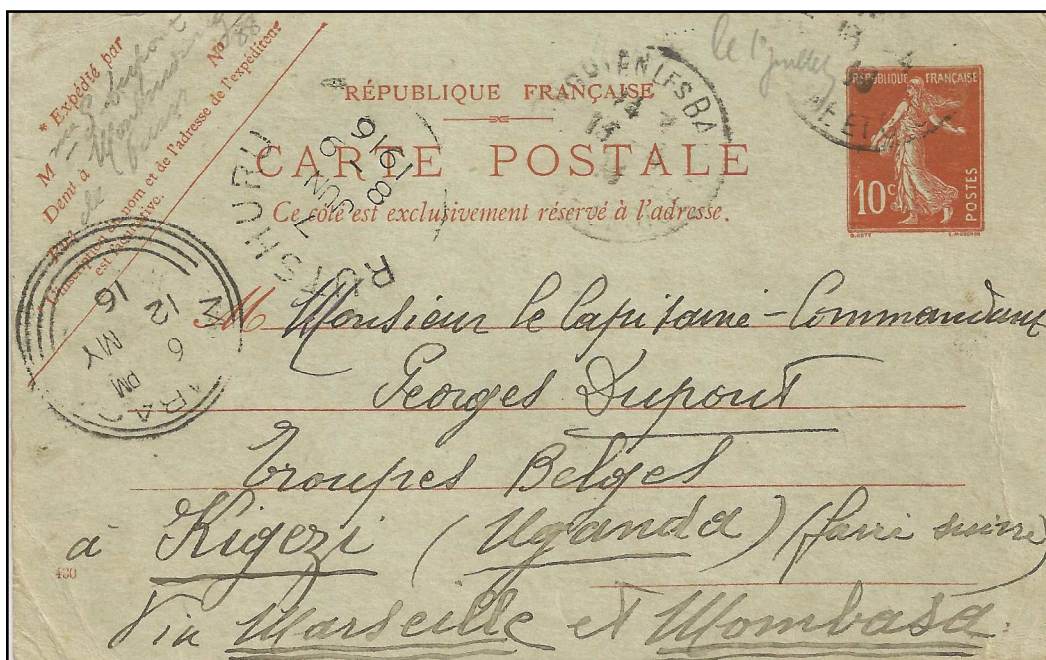 * Expédié par
M
Demt à
Rue
No 88
L'inscription du nom et de l'adresse de l'expéditeur
est facultative.
le 1r juillet
RÉPUBLIQUE FRANÇAISE
CARTE POSTALE
Ce côté est exclusivement réservé à l'adresse.
RÉPUBLIQUE FRANÇAISE
10c
POSTES
1916
8 JUN
12
6 PM
MY
16
M Monsieur le Capitaine-Commandant
Georges Dupont
Troupes Belges
à Kigezi (Uganda) (faire suivre)
Via Marseille et Mombasa.